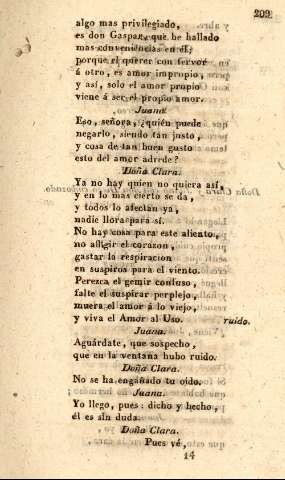 203
algo mas privilegiado,
es don Gaspar, que he hallado
mas conveniencias en él;
porque el querer con fervor
á otro, es amor impropio,
y así, solo el amor propio
viene á ser el propio amor.
Juana.
Eso, señora, ¿quién puede
negarlo, siendo tan justo,
y cosa de tan buen gusto
esto del amor adrede?
Doña Clara.
Ya no hay quien no quiera así,
y en lo mas cierto se da,
y todos lo afectan ya,
nadie llora para sí.
No hay cosa para este aliento,
no afligir el corazon,
gastar la respiracion
en suspiros para el viento.
Perezca el gemir confuso,
falte el suspirar perplejo,
muera el amor á lo viejo,
y viva el Amor al Uso. ruido.
Juana.
Aguárdate, que sospecho,
que en la ventana hubo ruido.
Doña Clara.
No se ha engañado tu oido.
Juana.
Yo llego, pues: dicho y hecho,
él es sin duda.
Doña Clara.
Pues vé,
14